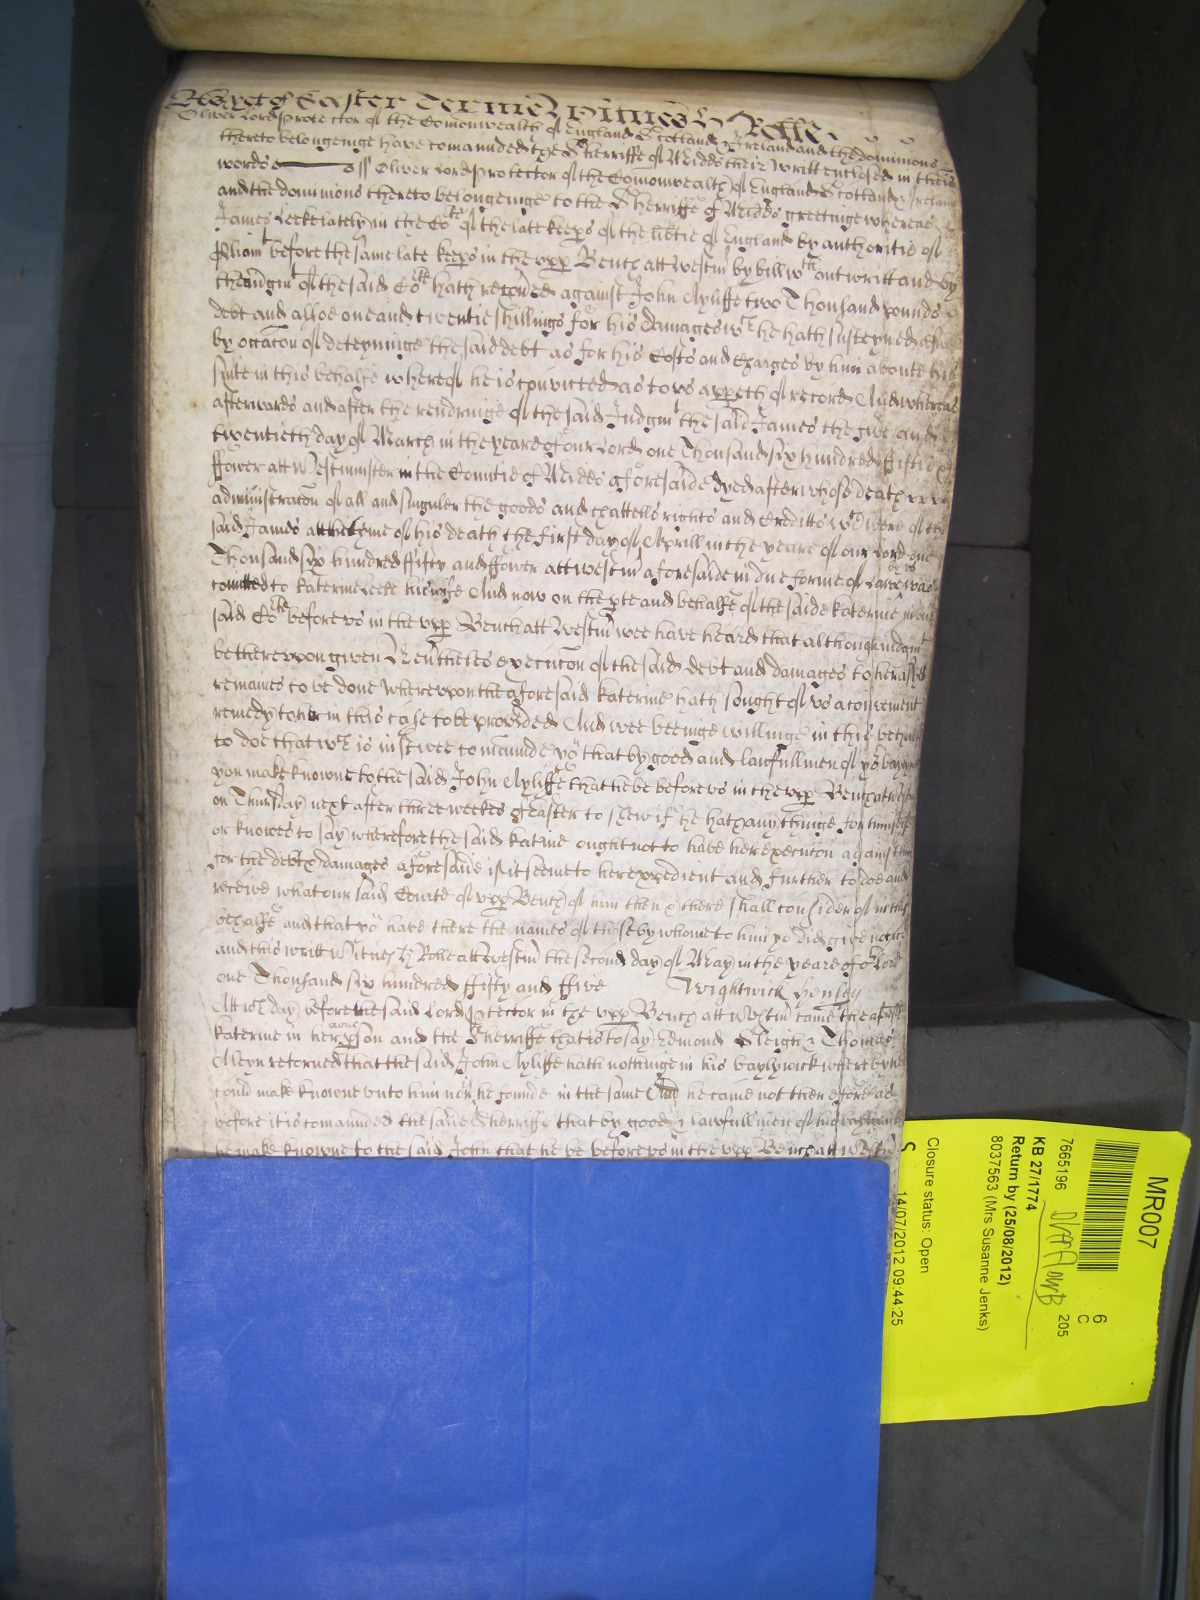 Easter Terme Witnes H Rolle
Oliver Lord Protector of the Comonwealth of England Scotland & Ireland and the dominions
thereto belongeinge have comaunded the Sherriffe of Midds theire writt enclosed in theis
wordes ss Oliver Lord Protector of the Comonwealth of England Scotland & Ireland
and the dominions thereto belongeinge to the Sherriffe of Midds greetinge whereas
James Leeke lately in the Cort of the late keeps of the libtie of England by authoritie of
Pliamt before the same late keeps in the upp Bench att Westm by bill wthout writt and by
the iudgmt of the said Cort hath recoved against John Ayliffe two Thousand pounds
debt and alsoe one and twentie shillings for his damages wch he hath susteyned
by occacon of deteyninge the said debt as for his Costs and Charges by him aboute his
suite in this behalfe whereof he is convicted as to us appeth of record And whereas
afterwards and after the rendringe of the said Judgmt the said James the five and
twentieth day of March in the yeare of our Lord one Thousand six hundred fiftie
ffower att Westminster in the Countie of Midds aforesaide dyed after whose death
administracon of all and singuler the goods and chattells rights and Creditts wch were of the
said James att the tyme of his death the first day of Aprill in the yeare of our Lord one
Thousand six hundred fifty and ffower att Westm aforesaide in due forme of Lawe was
comitted to Katerine Leeke his wife And now on the pte and behalfe of the saide Katerine in our
said Cort before us in the upp Bench att Westm wee have heard that although iudgmt
be thereupon given Nevtheles execucon of the said debt and damages to her
remaines to be done whereupon the aforesaid Katerine hath sought of us a convenient
remedy to her in this case to be provided And wee beeinge willinge in this behalfe
to doe that wch is iust wee comaunde yow that by good and lawfull men of yor
you make knowne to the said John Ayliffe that he be before us in the upp Bench att Westm
on Thursday next after three weekes of Easter to shew if he hath any thinge for himselfe
or knowes to say wherefore the said Katine ought not to have her execucon against him
for the debt & damages aforesaide if it seeme to her expedient and further to doe and
receive what our said Courte of upp Bench of him then & there shall consider of in this
behalfe and that yow have there the names of those by whome to him yow did give notice
and this writt Witnes H Rolle att Westm the second day of May in the yeare of or Lord
one Thousand six hundred fifty and ffive Wightwick Henley
Att wch day before the said Lord Ptector in the upp Bench att Westm came the
Katerine in her pson and the Sherriffe that is to say Edmond Sleigh & Thomas
Aleyn retorned that the said John Ayliffe hath nothinge in his baylywick whereby he
could make knowne unto him nor is he founde in the same And he came not therefore as
before it is comaunded the same Sherriffe that by good & lawfull men of his
he make knowne to the said John that he be before us in the upp Bench att Westm
MR007
6
C
205
7665196
KB 27/1774
Return by (25/08/2012)
8037563 (Mrs Susanne Jenks)
Closure status: Open
S
14/07/2012 09:44:25